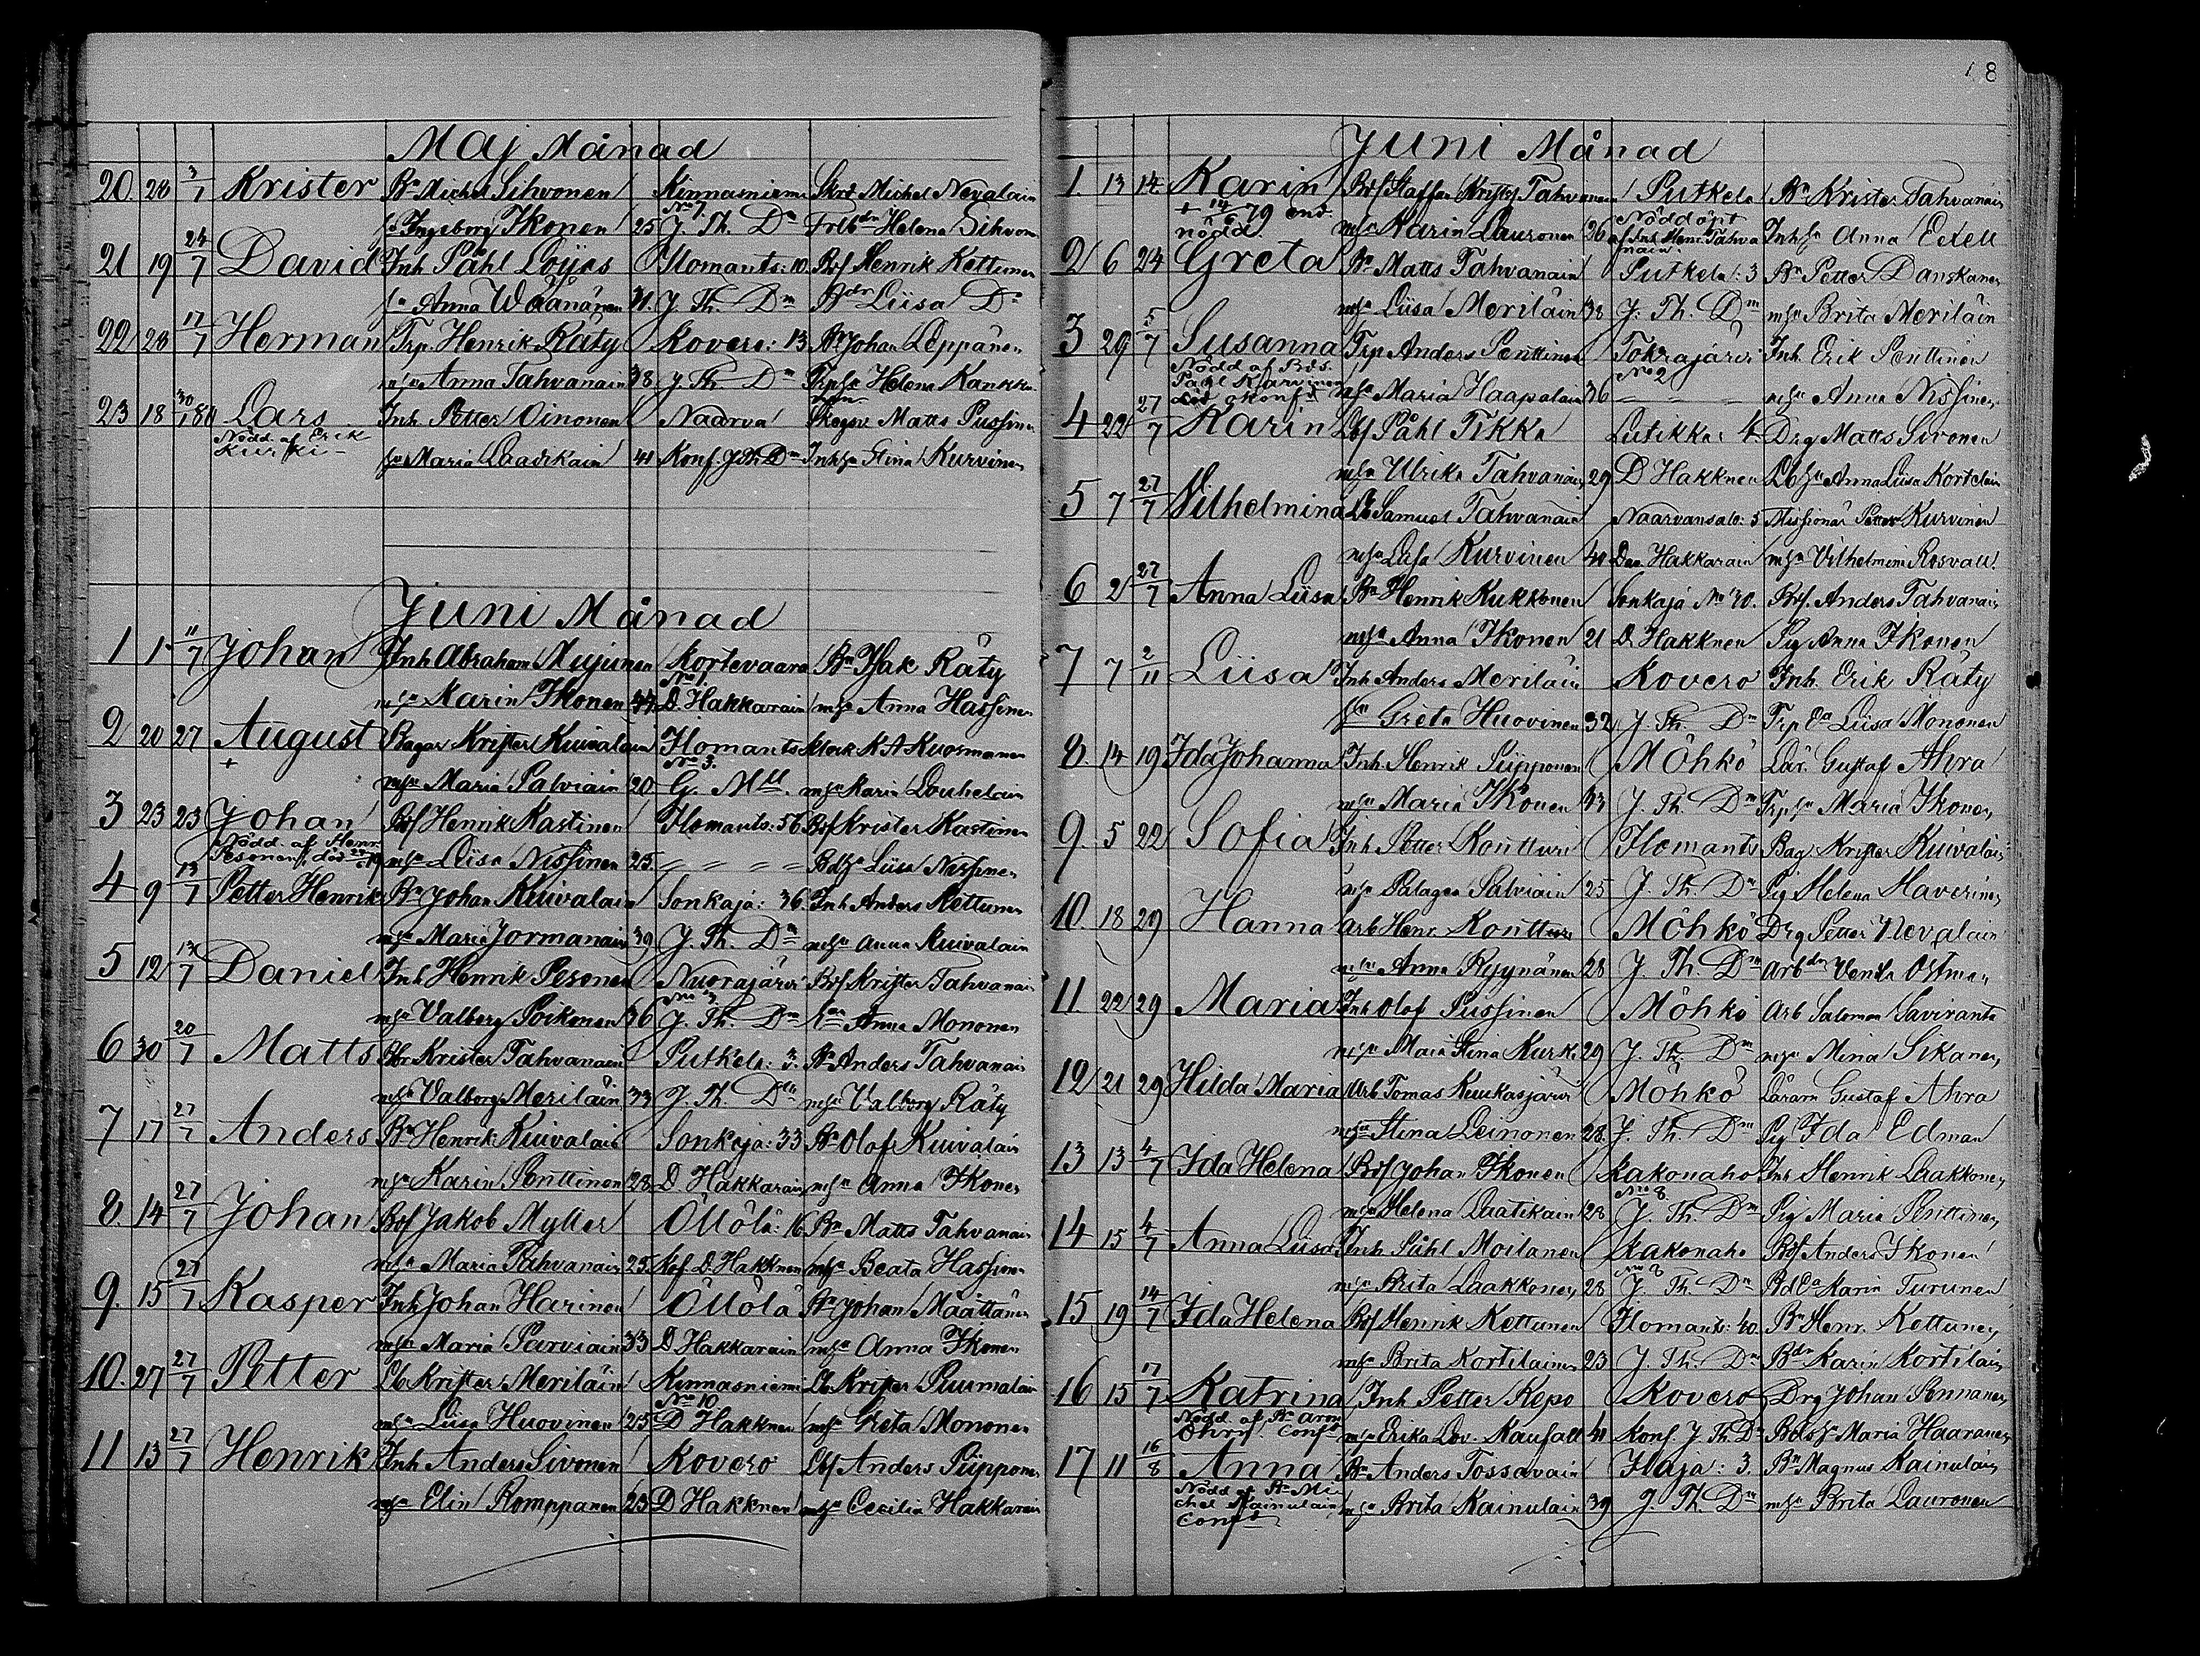 18
Maj Månad
20. 28 3/7 Krister Bn Michel Sihvonen Kinnasniemi Skrd Michel Nevalain
No 7.
Ingeborg Ikonen 25 J. Th. Dn Helena Sihvon
21 19 24/7 David Inh Påhl Löyjes Ilomants: 10 Bdf Henrik Kettunen
Anna Wäänänen 31. J. Th. Dn Liisa Dn
22 28 17/7 Herman Trp. Henrik Räty Kovero: 13 Bn Johan Leppänen
Anna Tahvanain 38. J. Th Dn Helena Kankku-
nen
23 18 Lars Inh Petter Oinonen Naarva Matts Pussinen
Nödd. af Erik
Kurki - Maria Laatikain 41 Konf. J Th Dn Stina Kurvinen
Juni Månad
1 1 11/7 Johan Inh Abraham Mujunen Kortevaara Bn Isak Räty
No 1.
Karin Ikonen D. Hakkarain Anna Hassinen
2 20 27 August Bagar Krister Kuivalain Ilomants Klock K A Kuosmanen
+ No 3.
Maria Palviain 20. G. Mll. Karin Louhelain
3 23 23 Johan Bdf Henrik Kastinen Ilomants: 56 Bdf Krister Kastinen
Nödd. af Henr.
Pesonen, död Liisa Nissinen 25 Liisa Nissinen
4 9 13/7 Petter Henrik Bn Johan Kuivalain Sonkaja: 36. Inh Anders Kettunen
Maria Jormanain 39 J. Th. Dn Anna Kuivalain
5 12 13/7 Daniel Inh Henrik Pesonen Nuorajärvi Bdf Krister Tahvanain
Valborg Poikonen 36 J. Th. Dn Anna Mononen
6 30 20/7 Matts Krister Tahvanain Putkela: Bn Anders Tahvanain
Valborg Meriläin 33 J. Th. Valborg Räty
7 17 27/7 Anders Bn Henrik Kuivalain Sonkaja: 33 Bn Olof Kuivalain
Karin Penttinen 28 D Hakkarain Anna Ikonen
8. 14 27/7 Johan Bdf Jakob Myller Öllölä: 16 Bn Matts Tahvanain
Maria Tahvanain 25 Kof. D. Hakknen Beata Hassinen
9. 15 27/7 Kasper Inh Johan Harinen Öllölä Bn Johan Määttänen
Maria Parviain 33 D Hakkarain Anna Ikonen
10. 27 27/7 Petter Lb Krister Meriläin Kinnasniemi Lb Krister Puumalain
No 10
Liisa Huovinen 25 D Hakknen Greta Mononen
11 13 27/7 Henrik Inh Anders Sivonen Kovero Anders Piipponen
Elin Romppanen 23 D Hakknen Cecilia Hakkarain
Juni Månad
1. 13 14 Karin Bdf Staffan Tahvanain Putkela Bn Krister Tahvanain
+ 14/6 79 end.
nödd Karin Lauronen 26 Nödd öpt
af Inh. Henr. Tahva
nain. Anna Eeteli
2 6 24 Greta Bn Matts Tahvanain Putkela: 3 Bn Petter Danskanen
Liisa Meriläin 38 J. Th. Dn Brita Meriläin
3 29 5/7 Susanna Trp Anders Penttinen Tokrajärvi Inh. Erik Penttinen
No 2
Nödd af Bds.
Påhl Kurvinen Maria Haapalain 36 Anna Nissinen
4 22 27/7 Karin Lbf Påhl Tikka Lutikka: 4 Drg Matts Sivonen
Ulrika Tahvanain 29 D Hakknen Anna Liisa Kortelain
5 7 27/7 Vilhelmina Lb Samuel Tahvanain Naarvansalo: 5 Missionär Petter Kurvinen
Liisa Kurvinen 40 Hakkarain Vilhelmina Rosvall
6 2 27/7 Anna Liisa Bn Henrik Kukkonen Sonkaja No 70. Bdf. Anders Tahvanain
Anna Ikonen 21 D Hakknen Pig Anna Ikonen
7 7 2/11 Liisa Inh Anders Meriläin Kovero Inh. Erik Räty
Greta Huovinen 32 J. Th. Dn Liisa Mononen
8. 14 19 Ida Johanna Inh. Henrik Piipponen Möhkö Lär. Gustaf Ahra
Maria Ikonen 33 J. Th. Dn Maria Ikonen
9. 5 22 Sofia Inh Petter Kontturi Ilomants Bag Krister Kuivalain
Palagea Palviain 25 J. Th. Dn Pig Helena Haverinen
10. 18 29 Hanna Arb Henr. Kontturi Möhkö Drg Petter Nevalain
Anna Ryynänen 28 J. Th. Dn Venla Östman
11. 22 29 Maria Inh Olof Pussinen Möhkö Arb Salomon Saviranta
Maria Stina Kurki 29 J. Th. Dn Mina Sikanen
12 21 29 Hilda Maria Arb Tomas Kuukasjärvi Möhkö Läraren Gustaf Ahra
Stina Leinonen 28. J. Th. Dn Pig Ida Edman
13 13 4/7 Ida Helena Bdf Johan Ikonen Kakonaho Inh Henrik Laakkonen
No 8.
Helena Laatikain 28 J. Th. Dn Pig Maria Penttinen
14 15 4/7 Anna Liisa Inh Påhl Moilanen Kakonaho Bdf Anders Ikonen
No 8
Brita Laakkonen 28 J. Th. Dn Karin Turunen
15 19 14/7 Ida Helena Bdf Henrik Kettunen Ilomants: 40. Bn Henr. Kettunen
Brita Kortilainen 23 J. Th. Dn Karin Kortilain
16 15 17/7 Katrina Inh Petter Repo Kovero Drg Johan Pennanen
Nödd af Bn Aron
Conft Erika Lov. Kaufalt 41 Konf. J. Th. Dn Maria Haaranen
17 11 16/8 Anna Bn Anders Tossavain Ilaja: 3. Bn Magnus Kainulain
Nödd af Bn Mi
chel Kainulain Brita Kainulain 39 J. Th. Dn Brita Lauronen
Conft